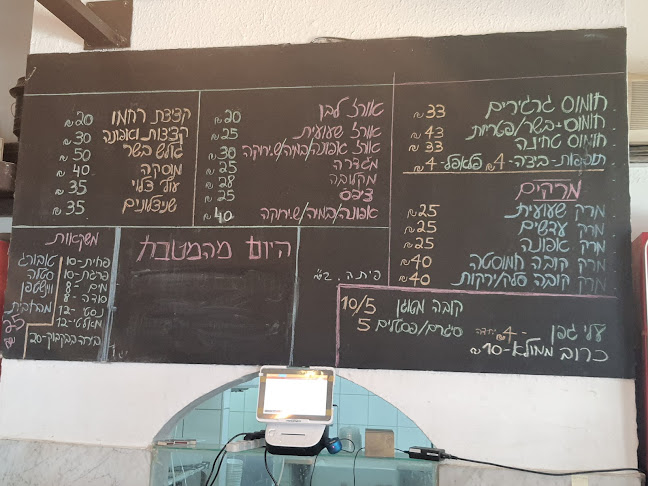 חומוס גרגירים 33 ₪
חומוס-בשר/פטריות 43 ₪
חומוס טחינה 33 ₪
תוספות-ביצה-4 ₪ פלאפל-4 ₪
מרקים
מרק שעועית 25 ₪
מרק עדשים 25 ₪
מרק אפונה 25 ₪
מרק קובה חמוסטה 40 ₪
מרק קובה סלק/ירקות 40 ₪
אורז לבן 20 ₪
אורז שעועית 25 ₪
אורז אפונה/במיה/ש.ירוקה 30 ₪
מג'דרה 25 ₪
מקלובה 28 ₪
צ'יפס 25 ₪
אפונה/במיה/ש.ירוקה 40 ₪
קציצת רחמו 20 ₪
קציצות ואפונה 30 ₪
גולש בשר 50 ₪
מוסקה 40 ₪
עוף צלוי 35 ₪
שניצלונים 35 ₪
פיתה 2 ₪
קובה מטוגן 10/5
סיגרים/פסטלים 5
עלי גפן - 4 ₪ יחידה
כרוב ממולא-10 ₪
היום מהמטבח
משקאות
פחית-10
פרגת-10
מים - 8
סודה - 8
נסטי -12
מאלטי-12
בירה בבקבוק-20
טובורג
סטלה
ווינשטפן
מהחבית
25